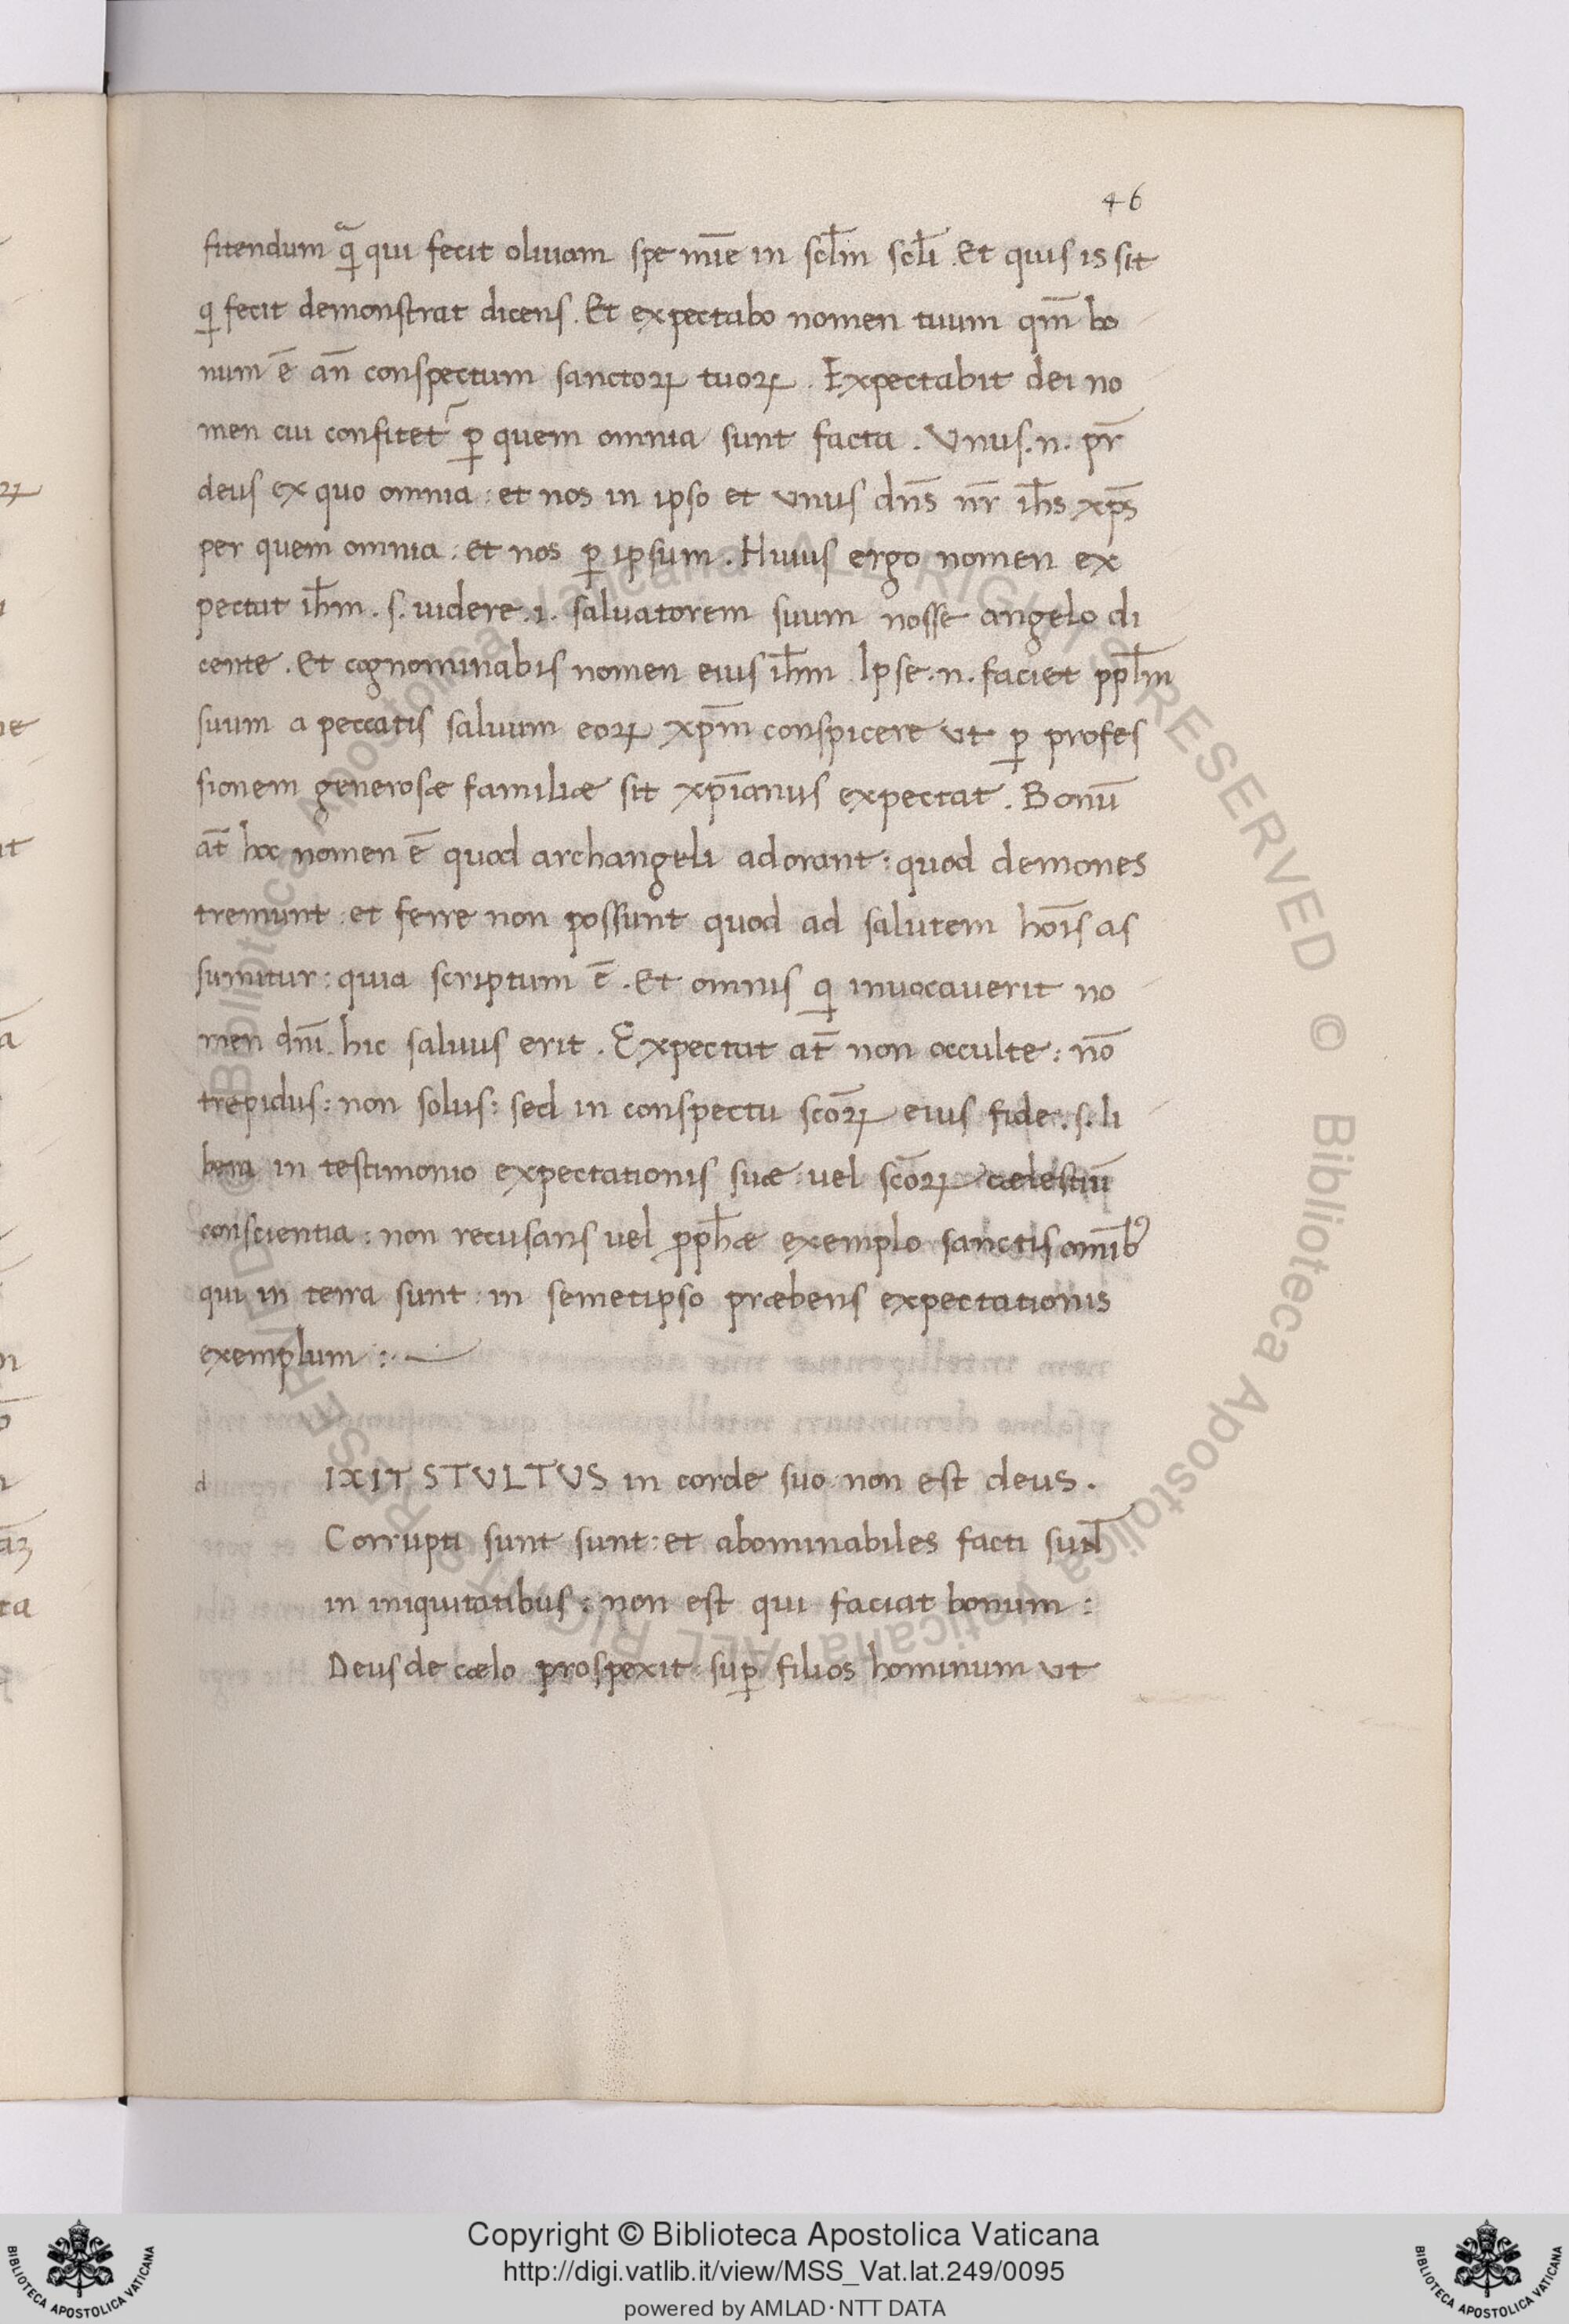 46
fitendum qͣ qui fecit oliuam spe mīe in scl̄m scl̄i . Et quis is sit
qi fecit demonstrat dicens . Et expectabo nomen tuum qm̄ bo
num ē an̄ conspectum sanctoꝝ tuoꝝ . Expectabit dei no
men cui confitet᷑ ꝑ quem omnia sunt facta . Vnus .n. pr̄
deus ex quo omnia : et nos in ipso et vnus dn̄s nr̄ ih̄s xp̄s
per quem omnia : et nos ꝑ ipsum . Huius ergo nomen ex
pectat ih̄m . s. uidere .i. saluatorem suum nosse angelo di
cente . Et cognominabis nomen eius ih̄m . Ipse .n. faciet ppl̄m
suum a peccatis saluum eoꝝ xp̄m conspicere vt ꝑ profes
sionem generosæ familiæ sit xp̄ianus expectat . Bonū
at̄ hoc nomen ē quod archangeli adorant : quod demones
tremunt : et ferre non possunt quod ad salutem hoīs as
sumitur : quia scriptum ē . Et omnis qi inuocauerit no
men dn̄i hic saluus erit . Expectat at̄ non occulte : nō
trepidus : non solus : sed in conspectu scōꝝ eius fide . s. li
bera in testimonio expectationis suæ : uel scōꝝ cælestiū
conscientia : non recusans uel pph̄æ exemplo sanctis omībꝰ
qui in terra sunt : in semetipso præbens expectationis
exemplum : ~
d IXIT STVLTVS in corde suo : non est deus .
Corrupti sunt sunt : et abominabiles facti sun̄t
in iniquitatibus : non est qui faciat bonum :
Deus de cælo prospexit : suꝑ filios hominum vt
© Biblioteca Apostolica Vaticana ALL RIGHTS RESERVED © Biblioteca Apostolica Vaticana ALL RIGHTS RESERVED
Copyright © Biblioteca Apostolica Vaticana
http://digi.vatlib.it/view/MSS_Vat.lat.249/0095
powered by AMLAD·NTT DATA
BIBLIOTECA APOSTOLICA VATICANA
BIBLIOTECA APOSTOLICA VATICANA